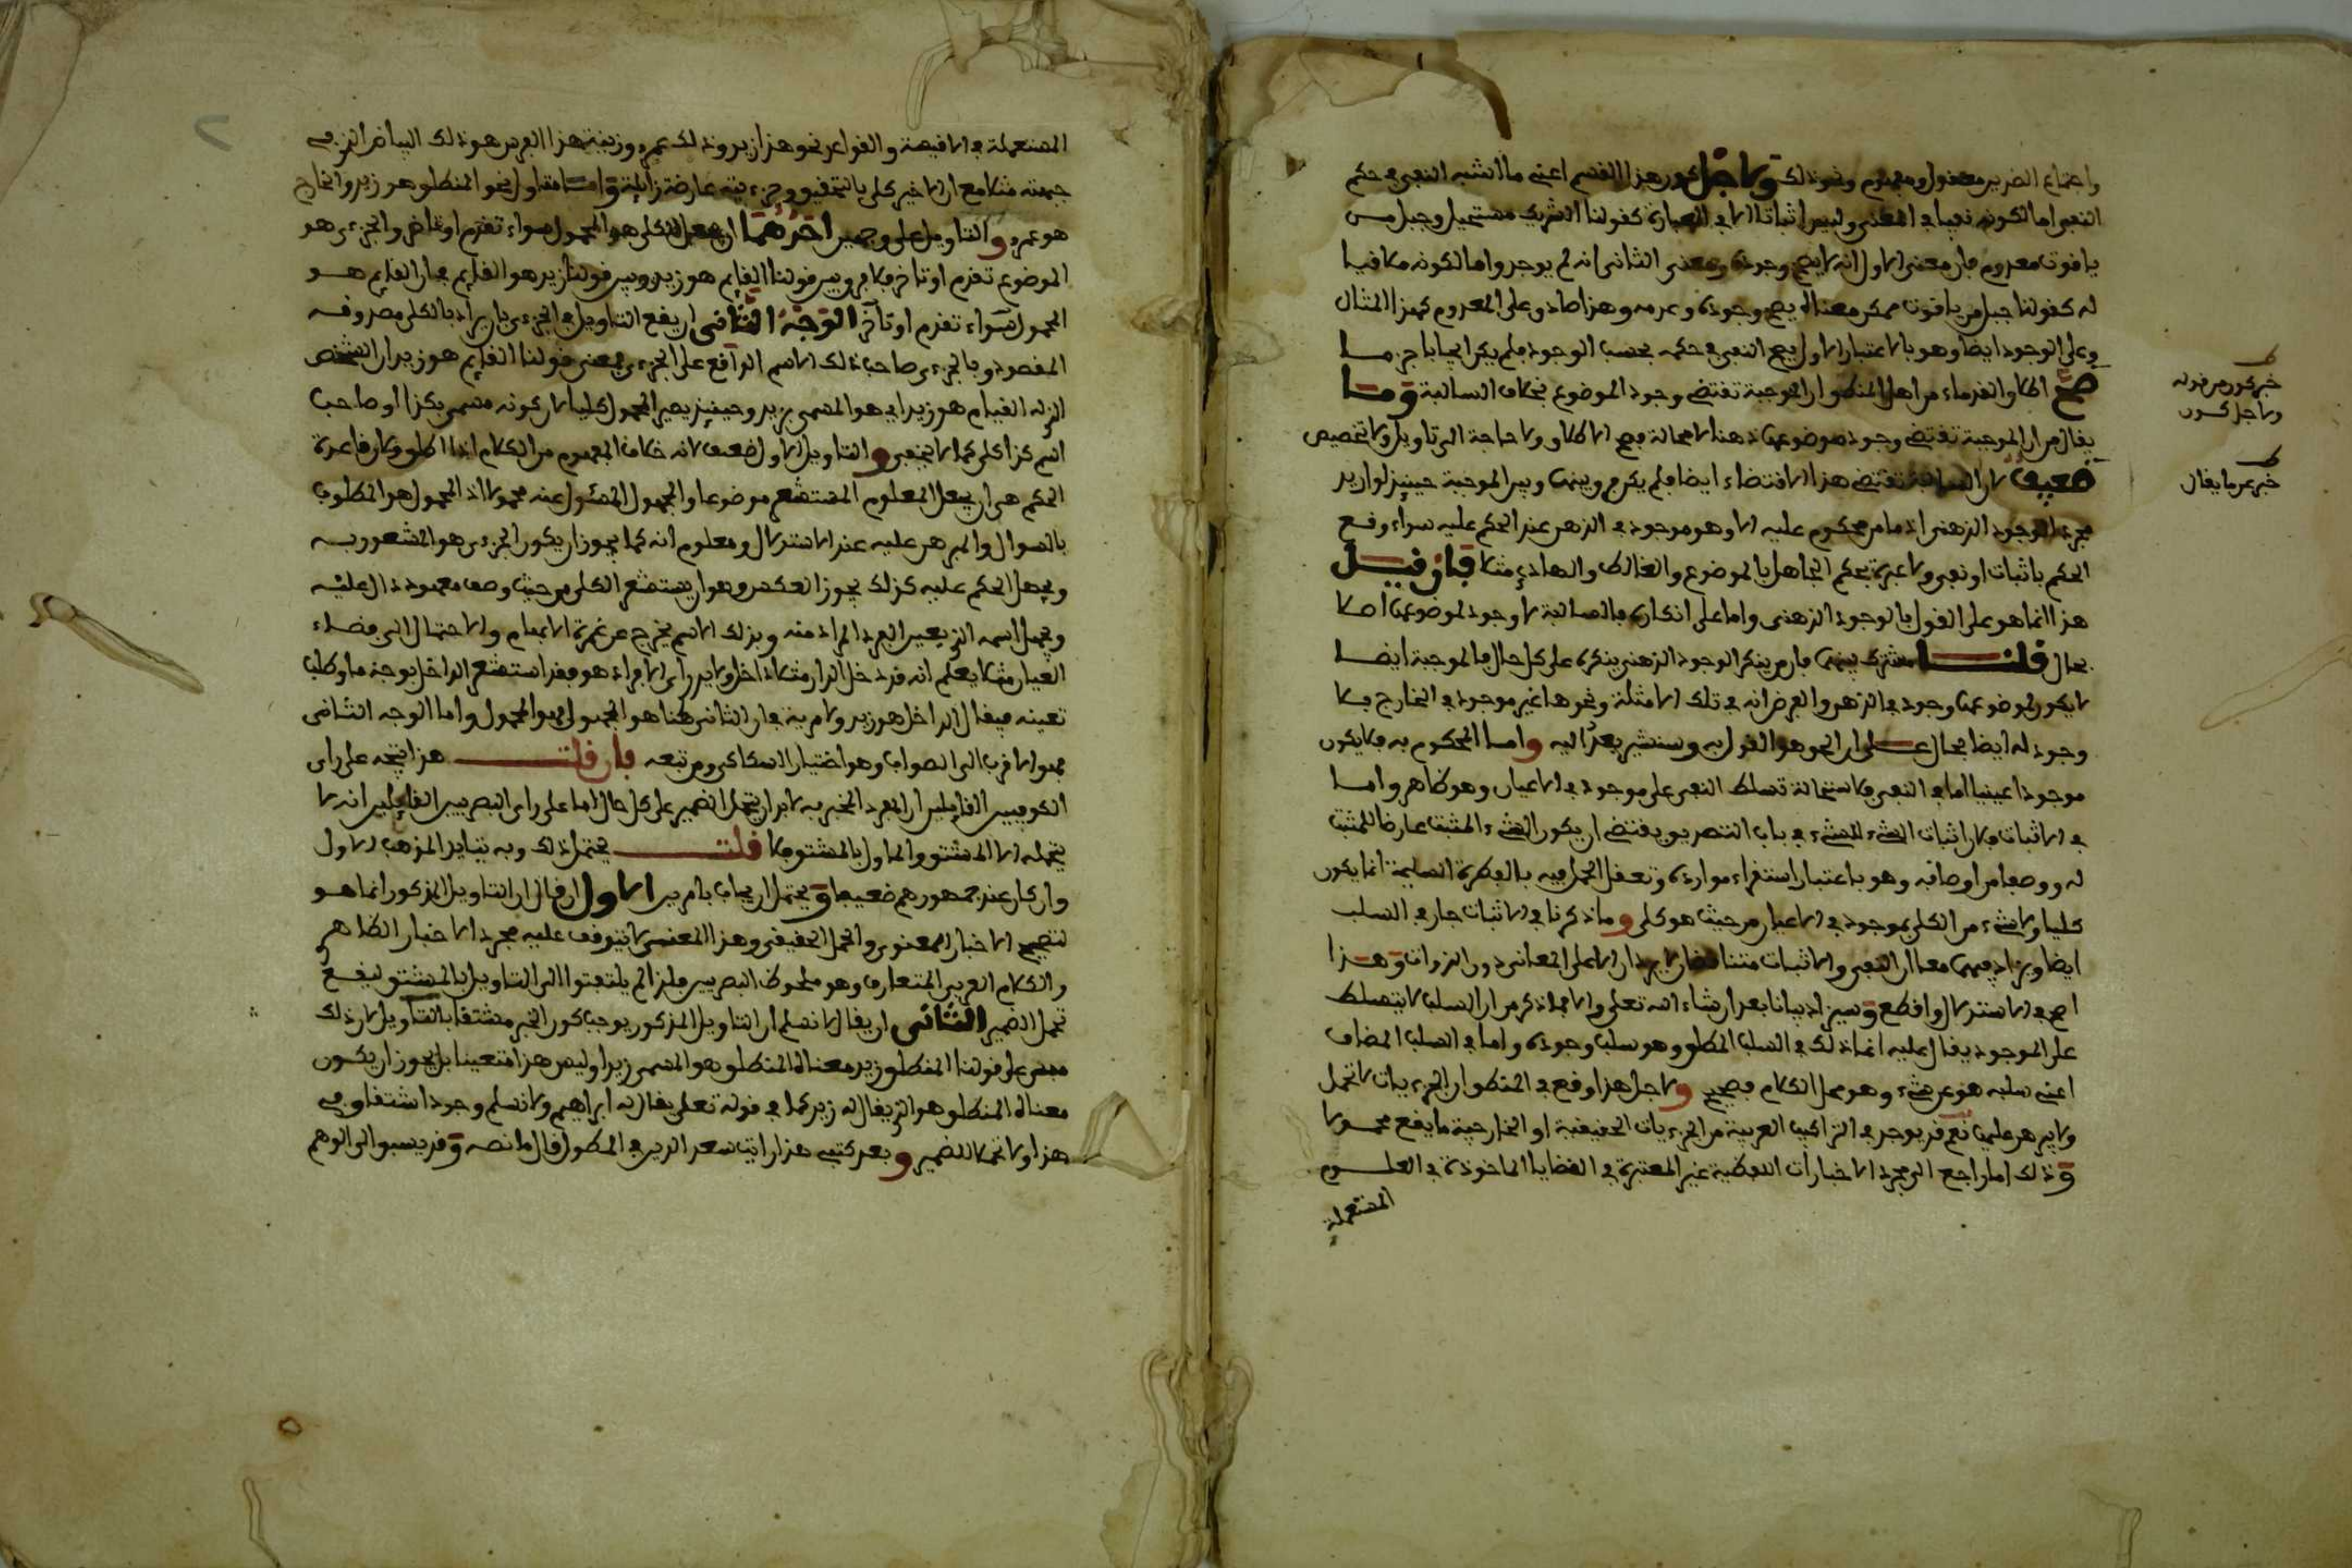 واجتماع الضدين معقول ومفهوم ونحو ذلك ولاجل كون هذا القسم اعنى ما اشبه النفي في حكم
النفي اما لكونه نفيا في المعنى وليس اثباتا الا في العبارة كقولنا الشريك مستحيل وجبل من
ياقوت معدوم فان معنى الاول انه لا يصح وجوده ومعنى الثانى انه لم يوجد واما لكونه ملاقيا
له كقولنا جبل من ياقوت ممكن معناه يصح وجوده وعدمه وهذا صادق على المعدوم كهذا المثال
وعلى الوجود ايضا وهو بالاعتبار الاول مع النفي في حكمه بحسب الوجود فلم يكن ايجابا جزما
صح اطلاق القدماء من اهل المنطق ان الموجبة تقتضى وجود الموضوع بخلاف السالبة وما
يقال من ان الموجبة تقتضى وجود موضوعها ذهنا لا محالة فصح الاطلاق ولا حاجة الى تاويل ولا تخصيص
ضعيف لان السالبة تقتضى هذا الاقتضاء ايضا فلم يكن فرق بينها وبين الموجبة حينئذ لو اريد
مجرد الوجود الذهنى اذ ما من محكوم عليه الا وهو موجود في الذهن عند الحكم عليه سواء وقع
الحكم باثبات او نفي ولا عبرة بحكم الجاهل بالموضوع والغالط والهاذي مثلا فان قيل
هذا انما هو على القول بالوجود الذهنى واما على انكاره فالسالبة لا وجود لموضوعها اصلا
بحال قلنا مشترك بينهما فان من ينكر الوجود الذهنى ينكره على كل حال فالموجبة ايضا
لا يكون لموضوعها وجود في الذهن والفرض انه في تلك الامثلة ونحوها غير موجود في الخارج فلا
وجود له ايضا بحال على ان الحق هو القول به وسنشير بعد اليه واما المحكوم به فلا يكون
موجودا عينيا اما في النفي فلاستحالة تسلط النفي على موجود في الاعيان وهو ظاهر واما
في الاثبات فلان اثبات الشيء للشيء في باب التصديق يقتضى ان يكون الشيء المثبت عارضا للمثبت
له ووصفا من اوصافه وهو باعتبار استقراء موارده وتعقل الحمل فيه بالفطرة السليمة انما يكون
كليا ولا شيء من الكلى بموجود في الاعيان من حيث هو كلى وما ذكرنا في الاثبات جار في السلب
ايضا ويزاد فيهما معا ان النفي والاثبات متناقضان لا يردان الا على المعانى دون الذوات وهذا
اصح في الاستدلال واقطع وسيزاد بيانا بعد ان شاء الله تعلى والا فما ذكر من ان السلب لا يتسلط
على الموجود يقال عليه انما ذلك في السلب المطلق وهو سلب وجوده واما في السلب المضاف
اعنى سلبه هو عن شيء وهو محل الكلام فصحيح ولاجل هذا وقع في المنطق ان الجزءيات لا تحمل
ولا يبرهن عليها نعم قد يوجد في التراكيب العربية من الجزءيات الحقيقية او الخارجية ما يقع محمولا
وذلك اما راجع الى مجرد الاخبارات اللفظية غير المعتبرة في القضايا الماخوذة في العلوم
المستعملة
ط
خبر كون من قوله
ولاجل كون
ط
خبر عن ما يقال
المستعملة في الاقيسة والقواعد نحو هذا زيد وذلك عمرو وزينة هذا الفرس هو ذلك البياض الذي في
جبهته مثلا مع ان الاخير كلى بالتحقيق وجزءيته عارضة زائلة واما متاول نحو المنطلق هو زيد والخارج
هو عمرو والتاويل على وجهين احدهما ان يجعل الكلى هو المحمول سواء تقدم او تاخر والجزءي هو
الموضوع تقدم او تاخر فلا فرق بين قولنا القايم هو زيد وبين قولنا زيد هو القايم في ان القايم هو
المحمول سواء تقدم او تاخر الوجه الثانى ان يقع التاويل في الجزءي بان يراد بالكلى مصدوقه
المقصود وبالجزءي صاحب ذلك الاسم الواقع على الجزءي فمعنى قولنا القايم هو زيد ان الشخص
الذى له القيام هو زيد اي هو المسمى بزيد وحينئذ يصير المحمول كليا لان كونه مسمى بكذا او صاحب
اسم كذا كلى كما لا يخفى والتاويل الاول ضعيف لانه خلاف المفهوم من الكلام اذا اطلق ولان قاعدة
الحكم هى ان يجعل المعلوم المستشعر موضوعا والمجهول المسئول عنه محمولا اذ المحمول هو المطلوب
بالسوال والمبرهن عليه عند الاستدلال ومعلوم انه كما يجوز ان يكون الجزءي هو المشعور به
ويجهل الحكم عليه كذلك يجوز العكس وهو ان يستشعر الكلى من حيث وصف معهود دال عليه
ويجهل اسمه الذي يعين الفرد المراد منه وبذلك الاسم يخرج عن غمرة الابهام والاحتمال الى فضاء
العيان مثلا يعلم انه قد دخل الدار مثلا داخل ولا يدرى اي الافراد هو فقد استشعر الداخل بوجه ما وطلب
تعيينه فيقال الداخل هو زيد ولا مرية في ان الثانى هنا هو المجهول فهو المحمول واما الوجه الثانى
فهو الاقرب الى الصواب وهو اختيار السكاكى ومن تبعه فان قلت هذا يتجه على راى
الكوفيين القايلين ان المفرد المخبر به لا بد ان يتحمل الضمير على كل حال اما على راى البصريين القايلين انه لا
يتحمله الا المشتق والماول بالمشتق فلا قلت يحتمل ذلك وبه يتايد المذهب الاول
وان كان عند جمهورهم ضعيفا ويحتمل ان يجاب بامرين الاول ان يقال ان التاويل المذكور انما هو
لتصحيح الاخبار المعنوي والحمل الحقيقى وهذا المعنى لا يتوقف عليه مجرد الاخبار الظاهر
والكلام العربي المتعارف وهو ملحوظ البصريين فلذا لم يلتفتوا الى التاويل بالمشتق ليقع
تحمل الضمير الثانى ان يقال لا نسلم ان التاويل المذكور يوجب كون الخبر مشتقا بالتاويل لان ذلك
مبنى على قولنا المنطلق زيد معناه المنطلق هو المسمى زيدا وليس هذا متعينا بل يجوز ان يكون
معناه المنطلق هو الذي يقال له زيد كما في قوله تعلى يقال له ابراهيم ولا نسلم وجود اشتقاق في
هذا ولا تحملا للضمير وبعد كتبى هذا رايت سعد الدين في المطول قال ما نصه وقد يسبق الى الوهم